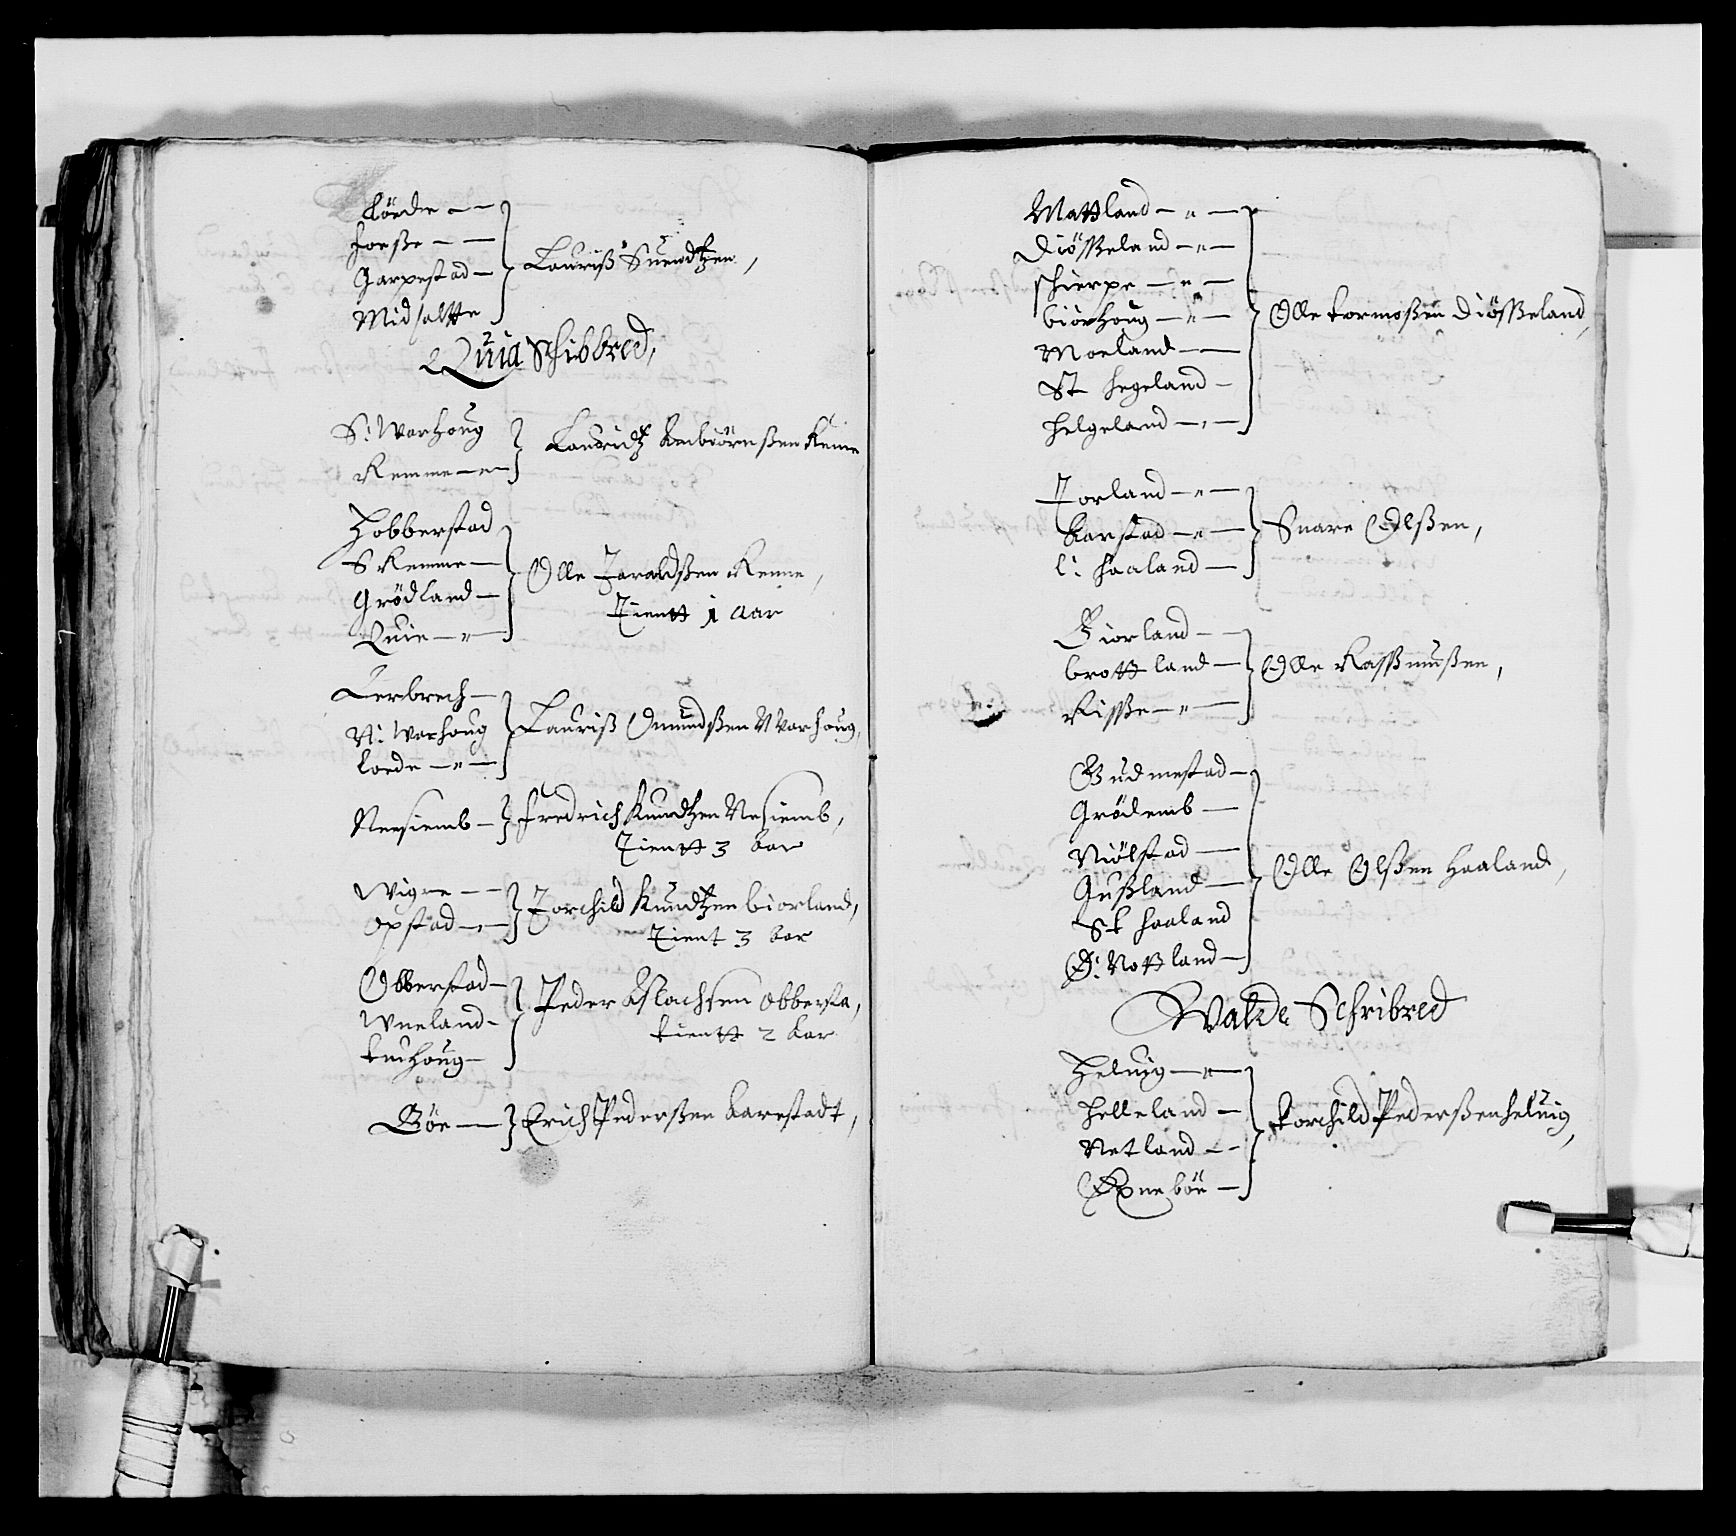 Löede
hoesse
Garpestad
Midsaltte
Lauriß Suendtzen,
Quia Schibbred,
S: Warhoug
Kemme
Lauridtz Anbiörnßen Keime
Hobberstad
S Kemme
Grödland
Quie
Olle Haraldßen Kenne,
Tientt 1 aar
Lerbrech
N: Warhoug
Loede
Lauriß Omundßen N Warhoug,
Neesiemb
Fredrich Knudtzen Nesiemb,
Tientt 3 aar
Wigre
Opstad
Torchild Knudtzen biorland,
Tient 3 aar
Obberstad
Wueland
tuchoug
Peder Aslachsen Obbersta,
tientt 2 aar
Böe
Erich Pederßen Karestadt,
Mattland
Diösseland
schierpe
biörhoug
Moeland
St hegeland
helgeland
Olle tormoßen Diösseland,
Torland
Karstad
l: haaland
Snare Olßen,
Biorland
brottland
Risse
Olle Rassmußen,
Gudmestad
Grödemb
Niölstad
Gußland
St haaland
Ø: Nottland
Olle Olßen Haaland,
Walde Schribred
Heluig
Helleland
Netland
Exnebön
torchild Pederßen heluig,